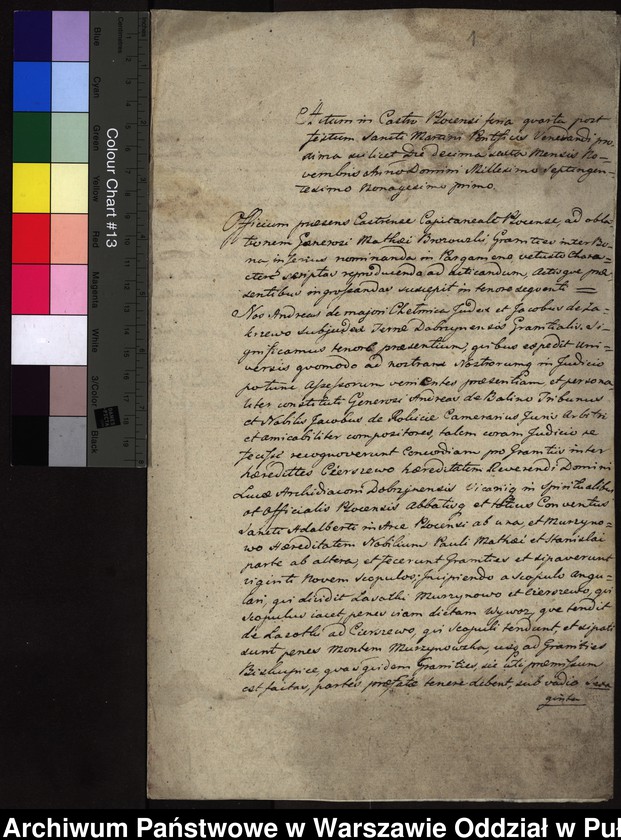 1
Actum in Castro Plocensi feria quarta post
festum Sancti Martini Pontificis Venerandi pro-
xima scilicet Die decima sexta Mensis No-
vembris Anno Domini Millesimo Septingen-
tesimo Nonagesimo primo.
Officium præsens Castrense Capitaneale Plocense, ad obla-
tionem Generosi Mathæi Borowski, Granities inter Bo-
na inferius nominanda in Pargameno vetusto chara-
ctere scriptas reproducenda ad leticandum, Actisque præ-
sentibus ingrossandas suscepit in tenore sequenti =
Nos Andreas de majori Chelmica Judex et Jacobus de Za-
krzewo subjudex Terræ Dobrzynensis Granitialis. Si-
gnificamus tenore præsentium, quibus expedit Uni-
versis quomodo ad nostram Nostrorumq in Judicio
potune Assessorum venientes præsentiam et persona
liter constituti Generosi Andreas de Balino Tribunus
et Nobilis Jacobus de Rokicie Camerarius Juris Arbitri
et amicabiliter compositores, talem coram Judicio re
fecisse recognoverunt Concordiam pro Granitiis inter
hæreditates Cierszewo hæreditatem Reverendi Domini
Lucæ Archidiaconi Dobrzynensis Vicariiq in Spiritualibus
et Officialis Plocensis Abbatisq et totius Conventus
Sancti Adalberti in Arce Plocensi ab una, et Murzyno-
wo Hæreditatem Nobilium Pauli Mathæi et Stanislai
parte ab altera, et fecerunt Granities et sipaverunt
viginti Novem scopulos, Incipiendo a scopulo angu-
lari, qui dividit Lasotki Murzynowo et Cierszewo, qui
scopulus iacet penes viam dictam Wywoz, que tendit
de Lazotki ad Cierszewo, qui scopuli tendunt, et sipati
sunt penes Montem Murzynowska, usq ad Granities
Biskupice, quas quidem Granities, sic uti præmissum
est factas, partes præfatæ tenere debent, sub vadio Sexa
ginta
Colour Chart #13
Blue
Cyan
Green
Yellow
Red
Magenta
White
3/Color
Black
Centimetres
Inches
Archiwum Państwowe w Warszawie Oddział w Puł